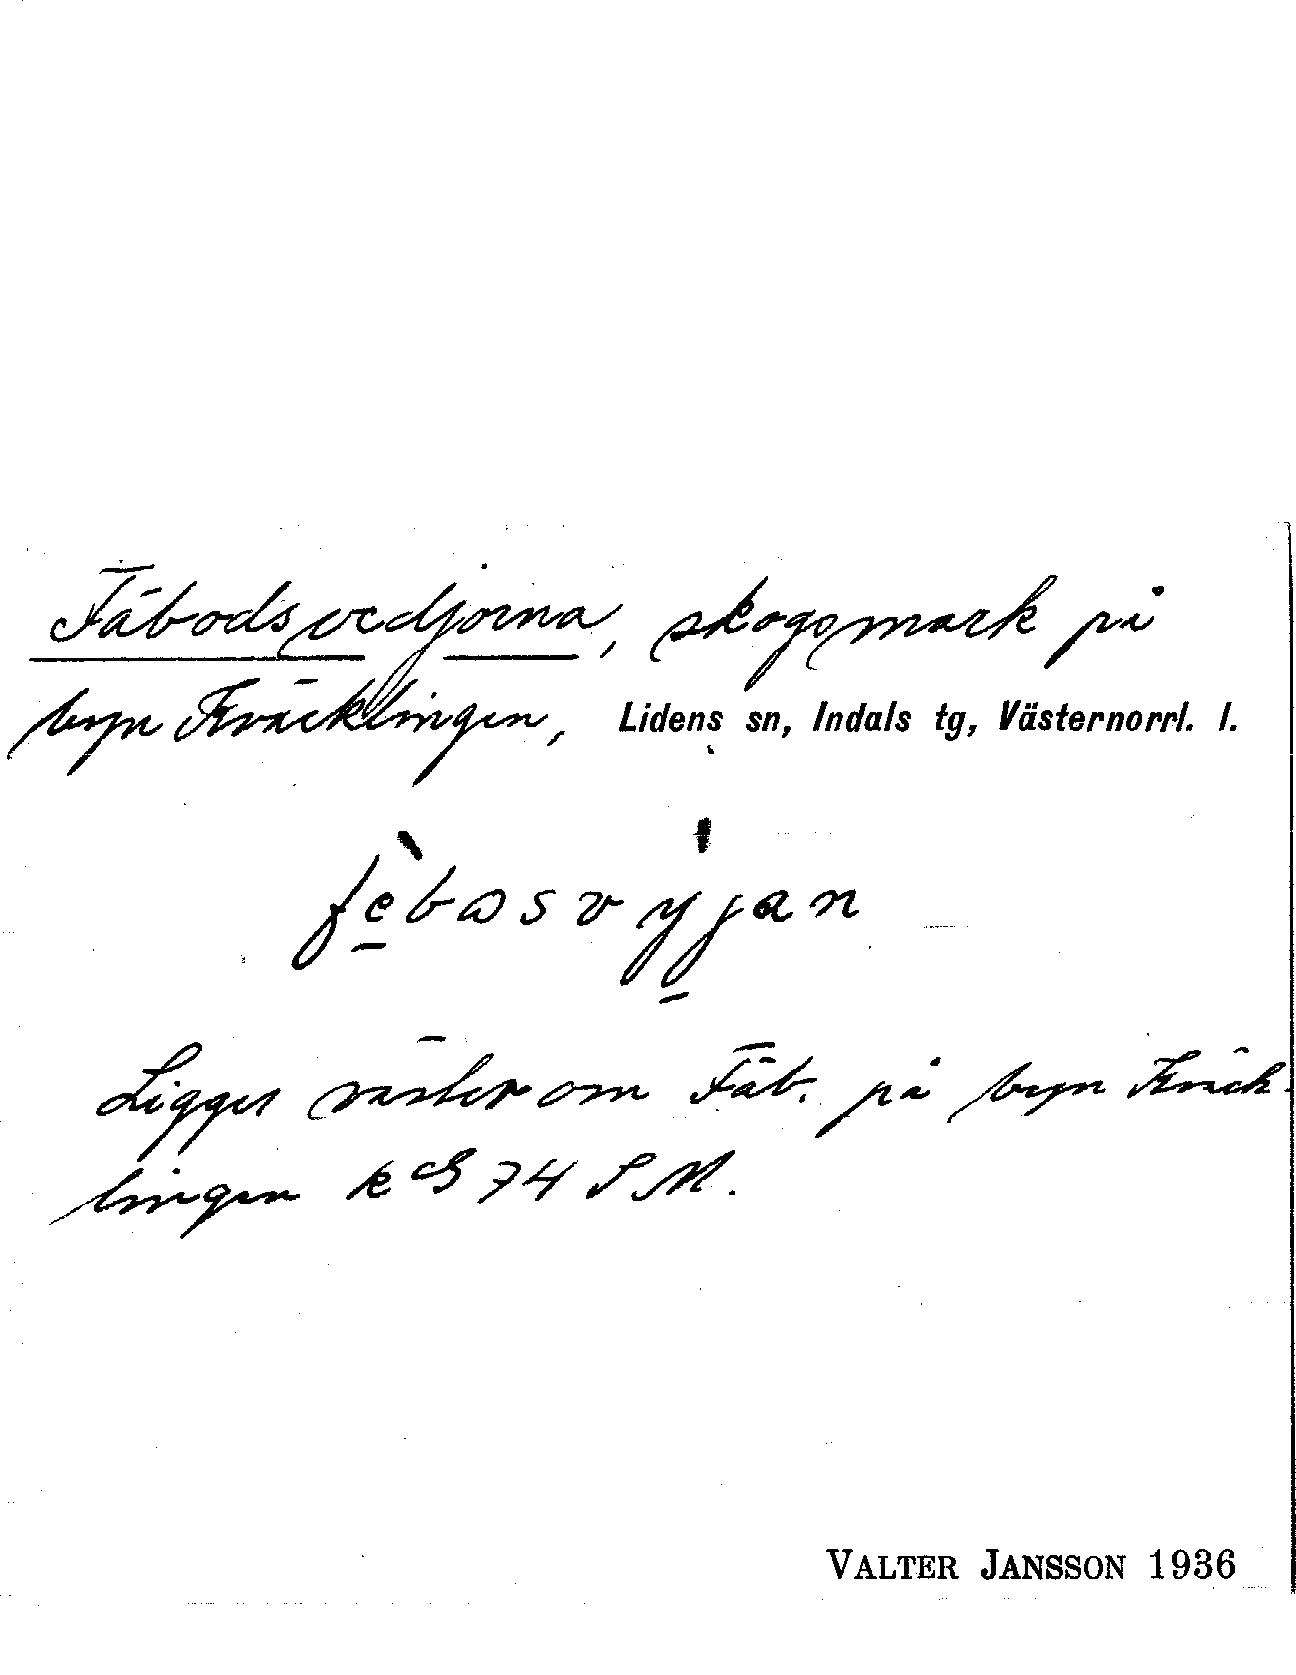 Fäbodsvedjorna, skogsmark på
byn Kväcklingen, Lidens sn, Indals tg, Västernorrl. l.
fèbωsvyjan
Ligger väster om Fäb. på byn Kväck-
lingen k 74 S M.
VALTER JANSSON 1936